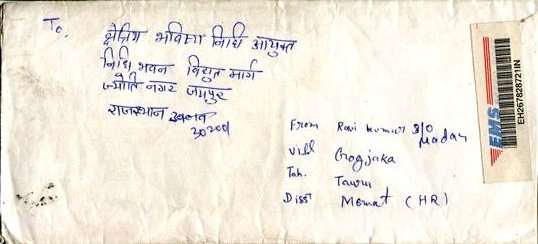 To,
क्षेत्रिय भविष्य निधि आयुक्त
निधि भवन विद्युत मार्ग
ज्योति नगर जयपुर
राजस्थान
302001
From Ravi Kumar S/O
Madan
Vill Gogjaka
Teh. Tawru
Disst Mewat (HR)
EMS
EH267828721IN